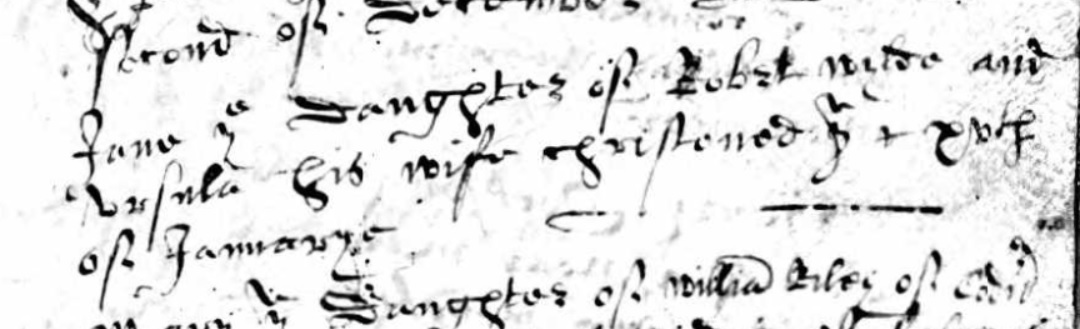 second of December
Jane ye Daughter of Robert wilde and
Vrsula his wife christened ye xvth
of Januarye
ye Daughter of william Riley of